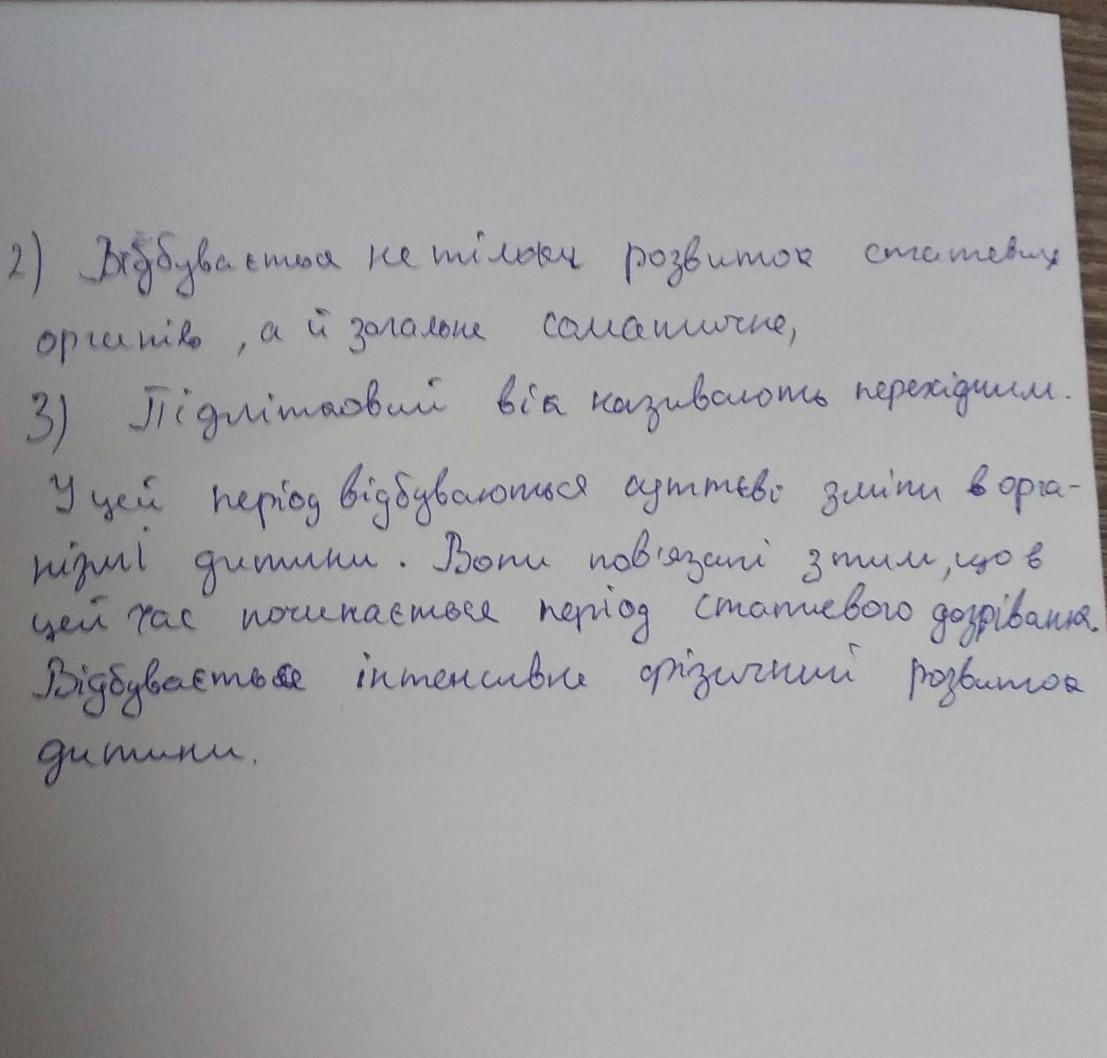 2) Відбувається не тільки розвиток статевих
органів, а й загальне соматичне,
3) Підлітковий вік називають перехідним.
У цей період відбуваються суттєві зміни в орга-
нізмі дитини. Вони пов'язані з тим, що в
цей час починається період статевого дозрівання.
Відбувається інтенсивне фізичний розвиток
дитини.